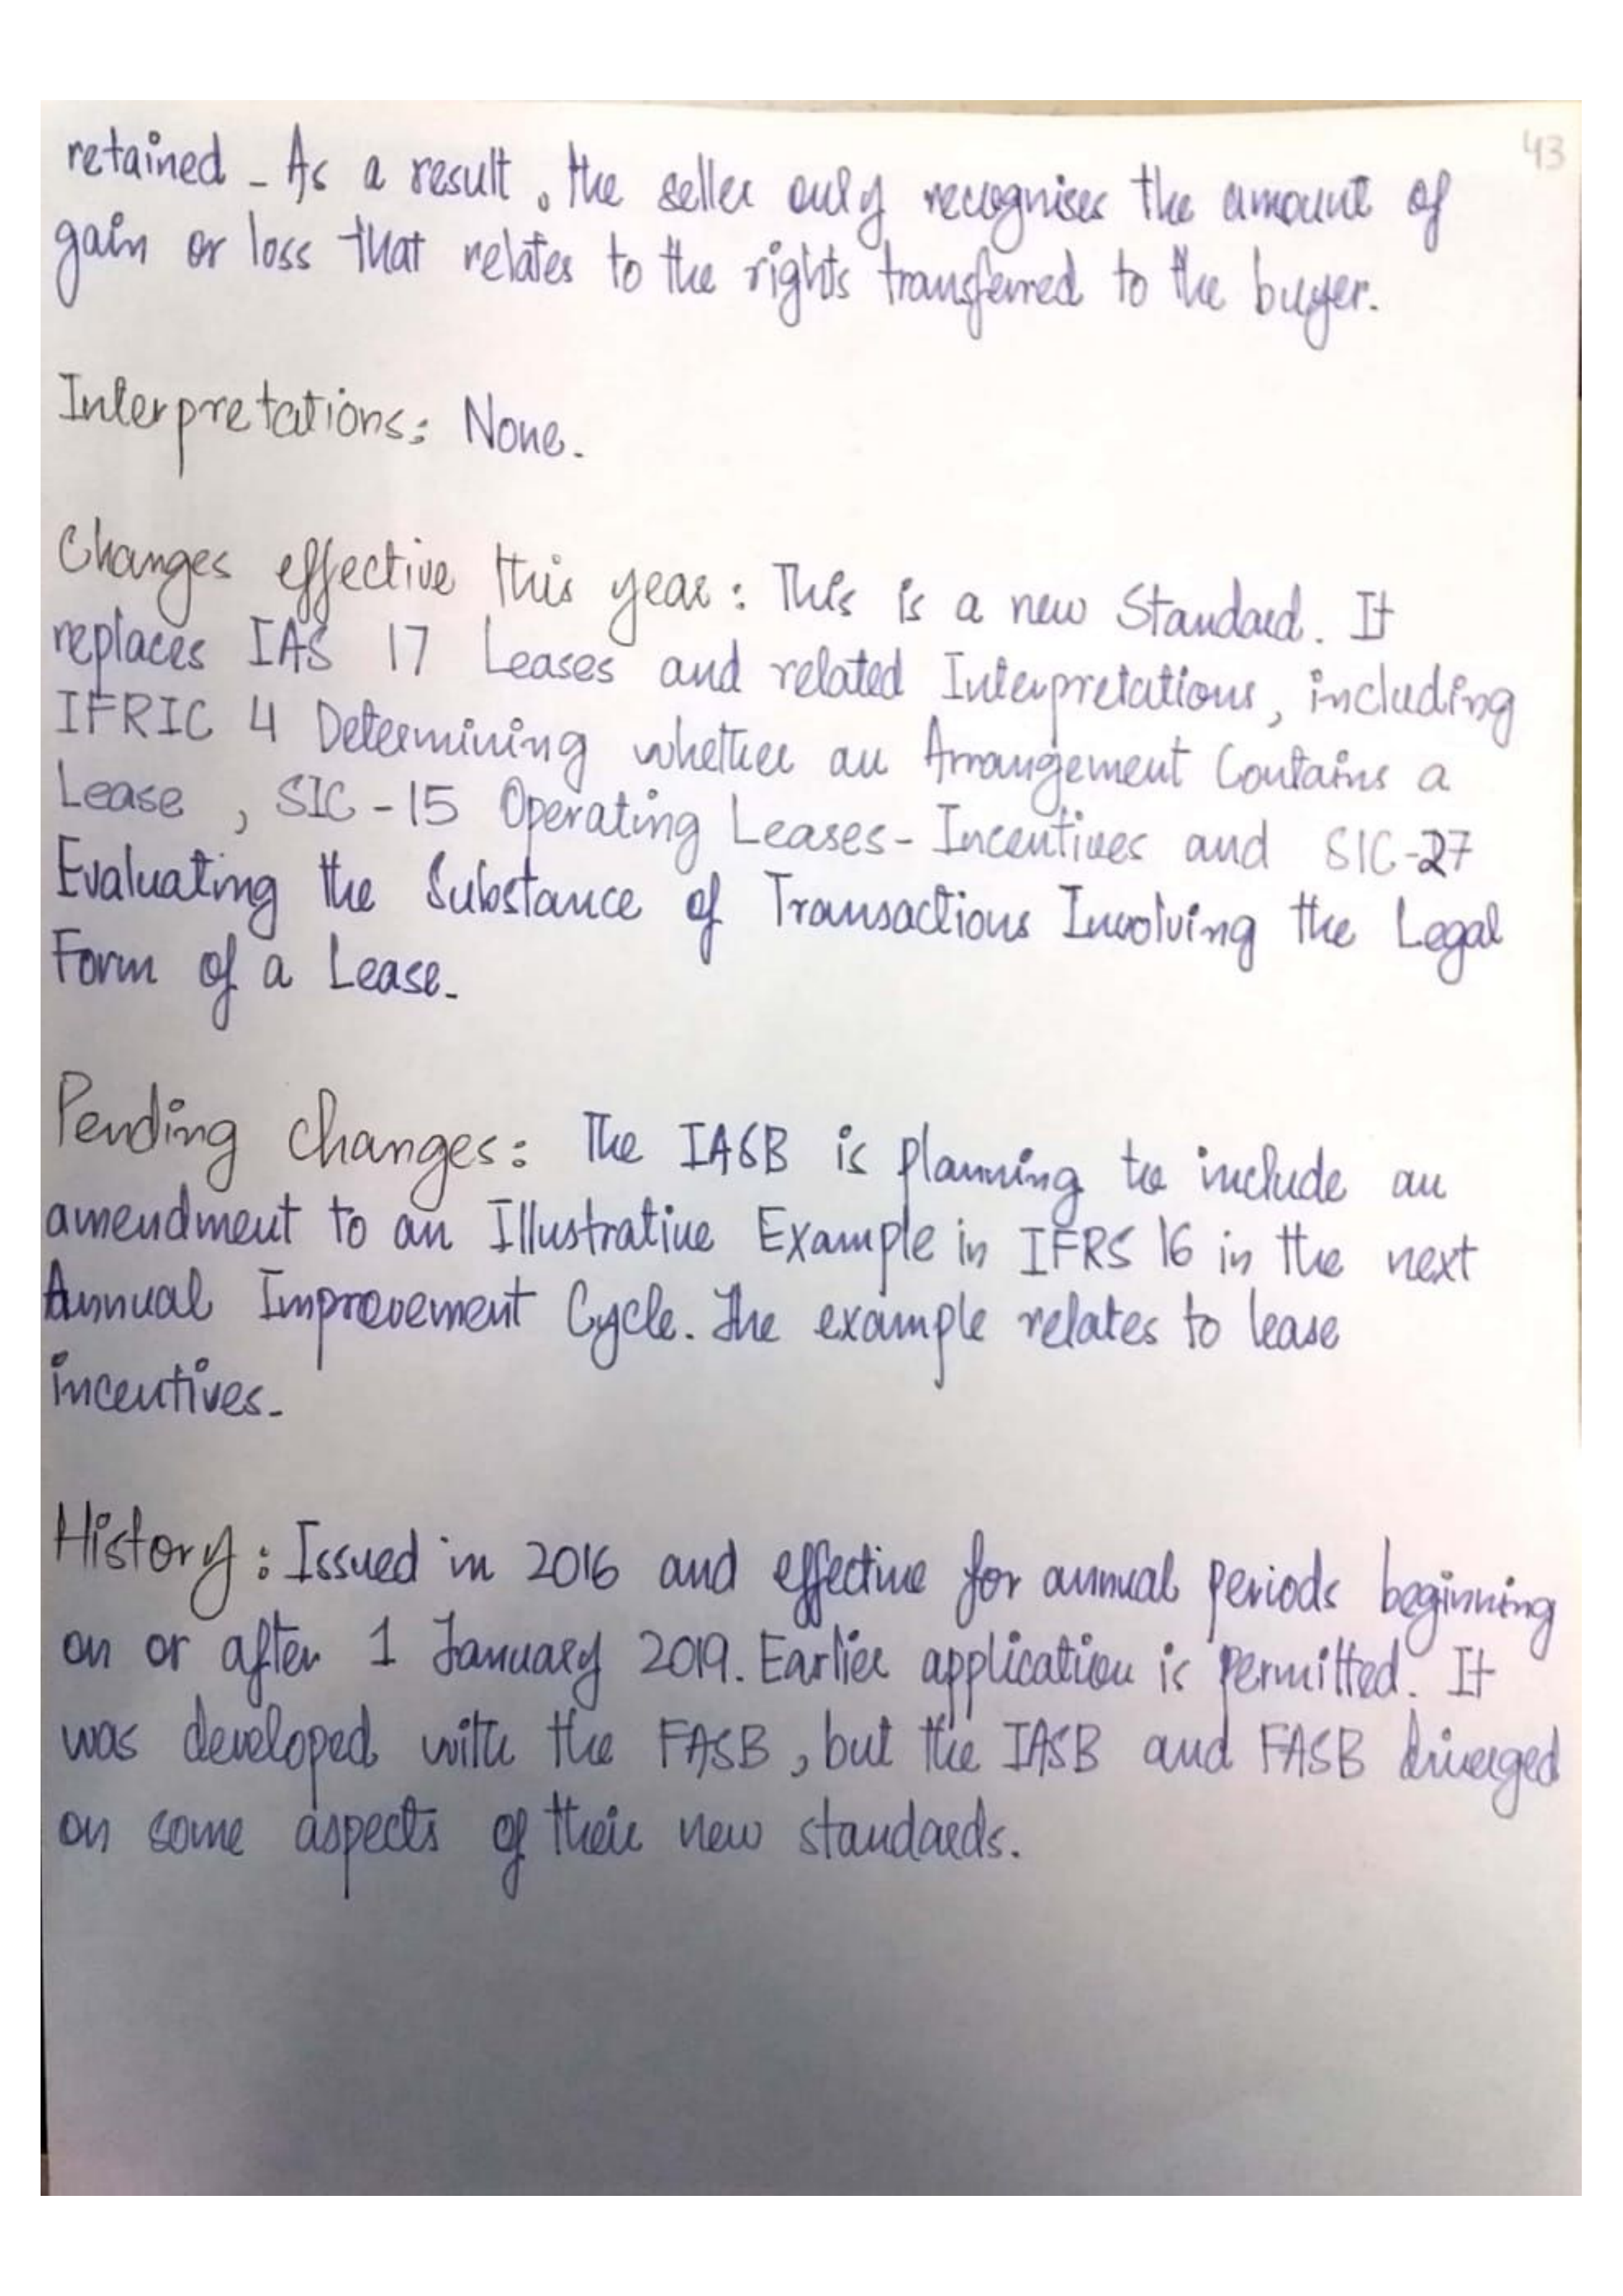 43
retained - As a result, the seller only recognises the amount of
gain or loss that relates to the rights transferred to the buyer.
Interpretations: None.
Changes effective this year: This is a new Standard. It
replaces IAS 17 Leases and related Interpretations, including
IFRIC 4 Determining whether an Arrangement Contains a
Lease, SIC-15 Operating Leases-Incentives and SIC-27
Evaluating the Substance of Transactions Involving the Legal
Form of a Lease.
Pending changes: The IASB is planning to include an
amendment to an Illustrative Example in IFRS 16 in the next
Annual Improvement Cycle. The example relates to lease
incentives.
History: Issued in 2016 and effective for annual periods beginning
on or after 1 January 2019. Earlier application is permitted. It
was developed with the FASB, but the IASB and FASB diverged
on some aspects of their new standards.